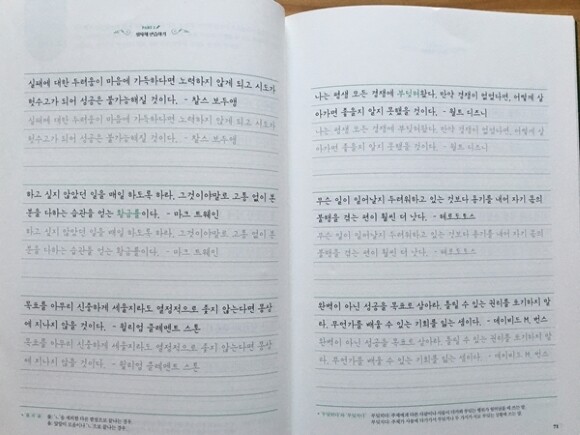 실패에 대한 두려움이 마음에 가득하다면 노력하지 않게 되고 시도가
헛수고가 되어 성공은 불가능해질 것이다. - 찰스 보두앵
실패에 대한 두려움이 마음에 가득하다면 노력하지 않게 되고 시도가
헛수고가 되어 성공은 불가능해질 것이다. - 찰스 보두앵
하고 싶지 않았던 일을 매일 하도록 하라. 그것이야말로 고통 없이 본
분을 다하는 습관을 얻는 황금률이다. - 마크 트웨인
하고 싶지 않았던 일을 매일 하도록 하라. 그것이야말로 고통 없이 본
분을 다하는 습관을 얻는 황금률이다. - 마크 트웨인
목표를 아무리 신중하게 세울지라도 열정적으로 좇지 않는다면 몽상
에 지나지 않을 것이다. - 윌리엄 클레멘트 스톤
목표를 아무리 신중하게 세울지라도 열정적으로 좇지 않는다면 몽상
에 지나지 않을 것이다. - 윌리엄 클레멘트 스톤
나는 평생 모든 경쟁에 부딪혀왔다. 만약 경쟁이 없었다면, 어떻게 살
아가면 좋을지 알지 못했을 것이다. - 월트 디즈니
나는 평생 모든 경쟁에 부딪혀왔다. 만약 경쟁이 없었다면, 어떻게 살
아가면 좋을지 알지 못했을 것이다. - 월트 디즈니
무슨 일이 일어날지 두려워하고 있는 것보다 용기를 내어 자기 몫의
불행을 겪는 편이 훨씬 더 낫다. - 헤로도토스
무슨 일이 일어날지 두려워하고 있는 것보다 용기를 내어 자기 몫의
불행을 겪는 편이 훨씬 더 낫다. - 헤로도토스
완벽이 아닌 성공을 목표로 삼아라. 틀릴 수 있는 권리를 포기하지 말
라. 무언가를 배울 수 있는 기회를 잃는 셈이다. - 데이비드 M. 번스
완벽이 아닌 성공을 목표로 삼아라. 틀릴 수 있는 권리를 포기하지 말
라. 무언가를 배울 수 있는 기회를 잃는 셈이다. - 데이비드 M. 번스